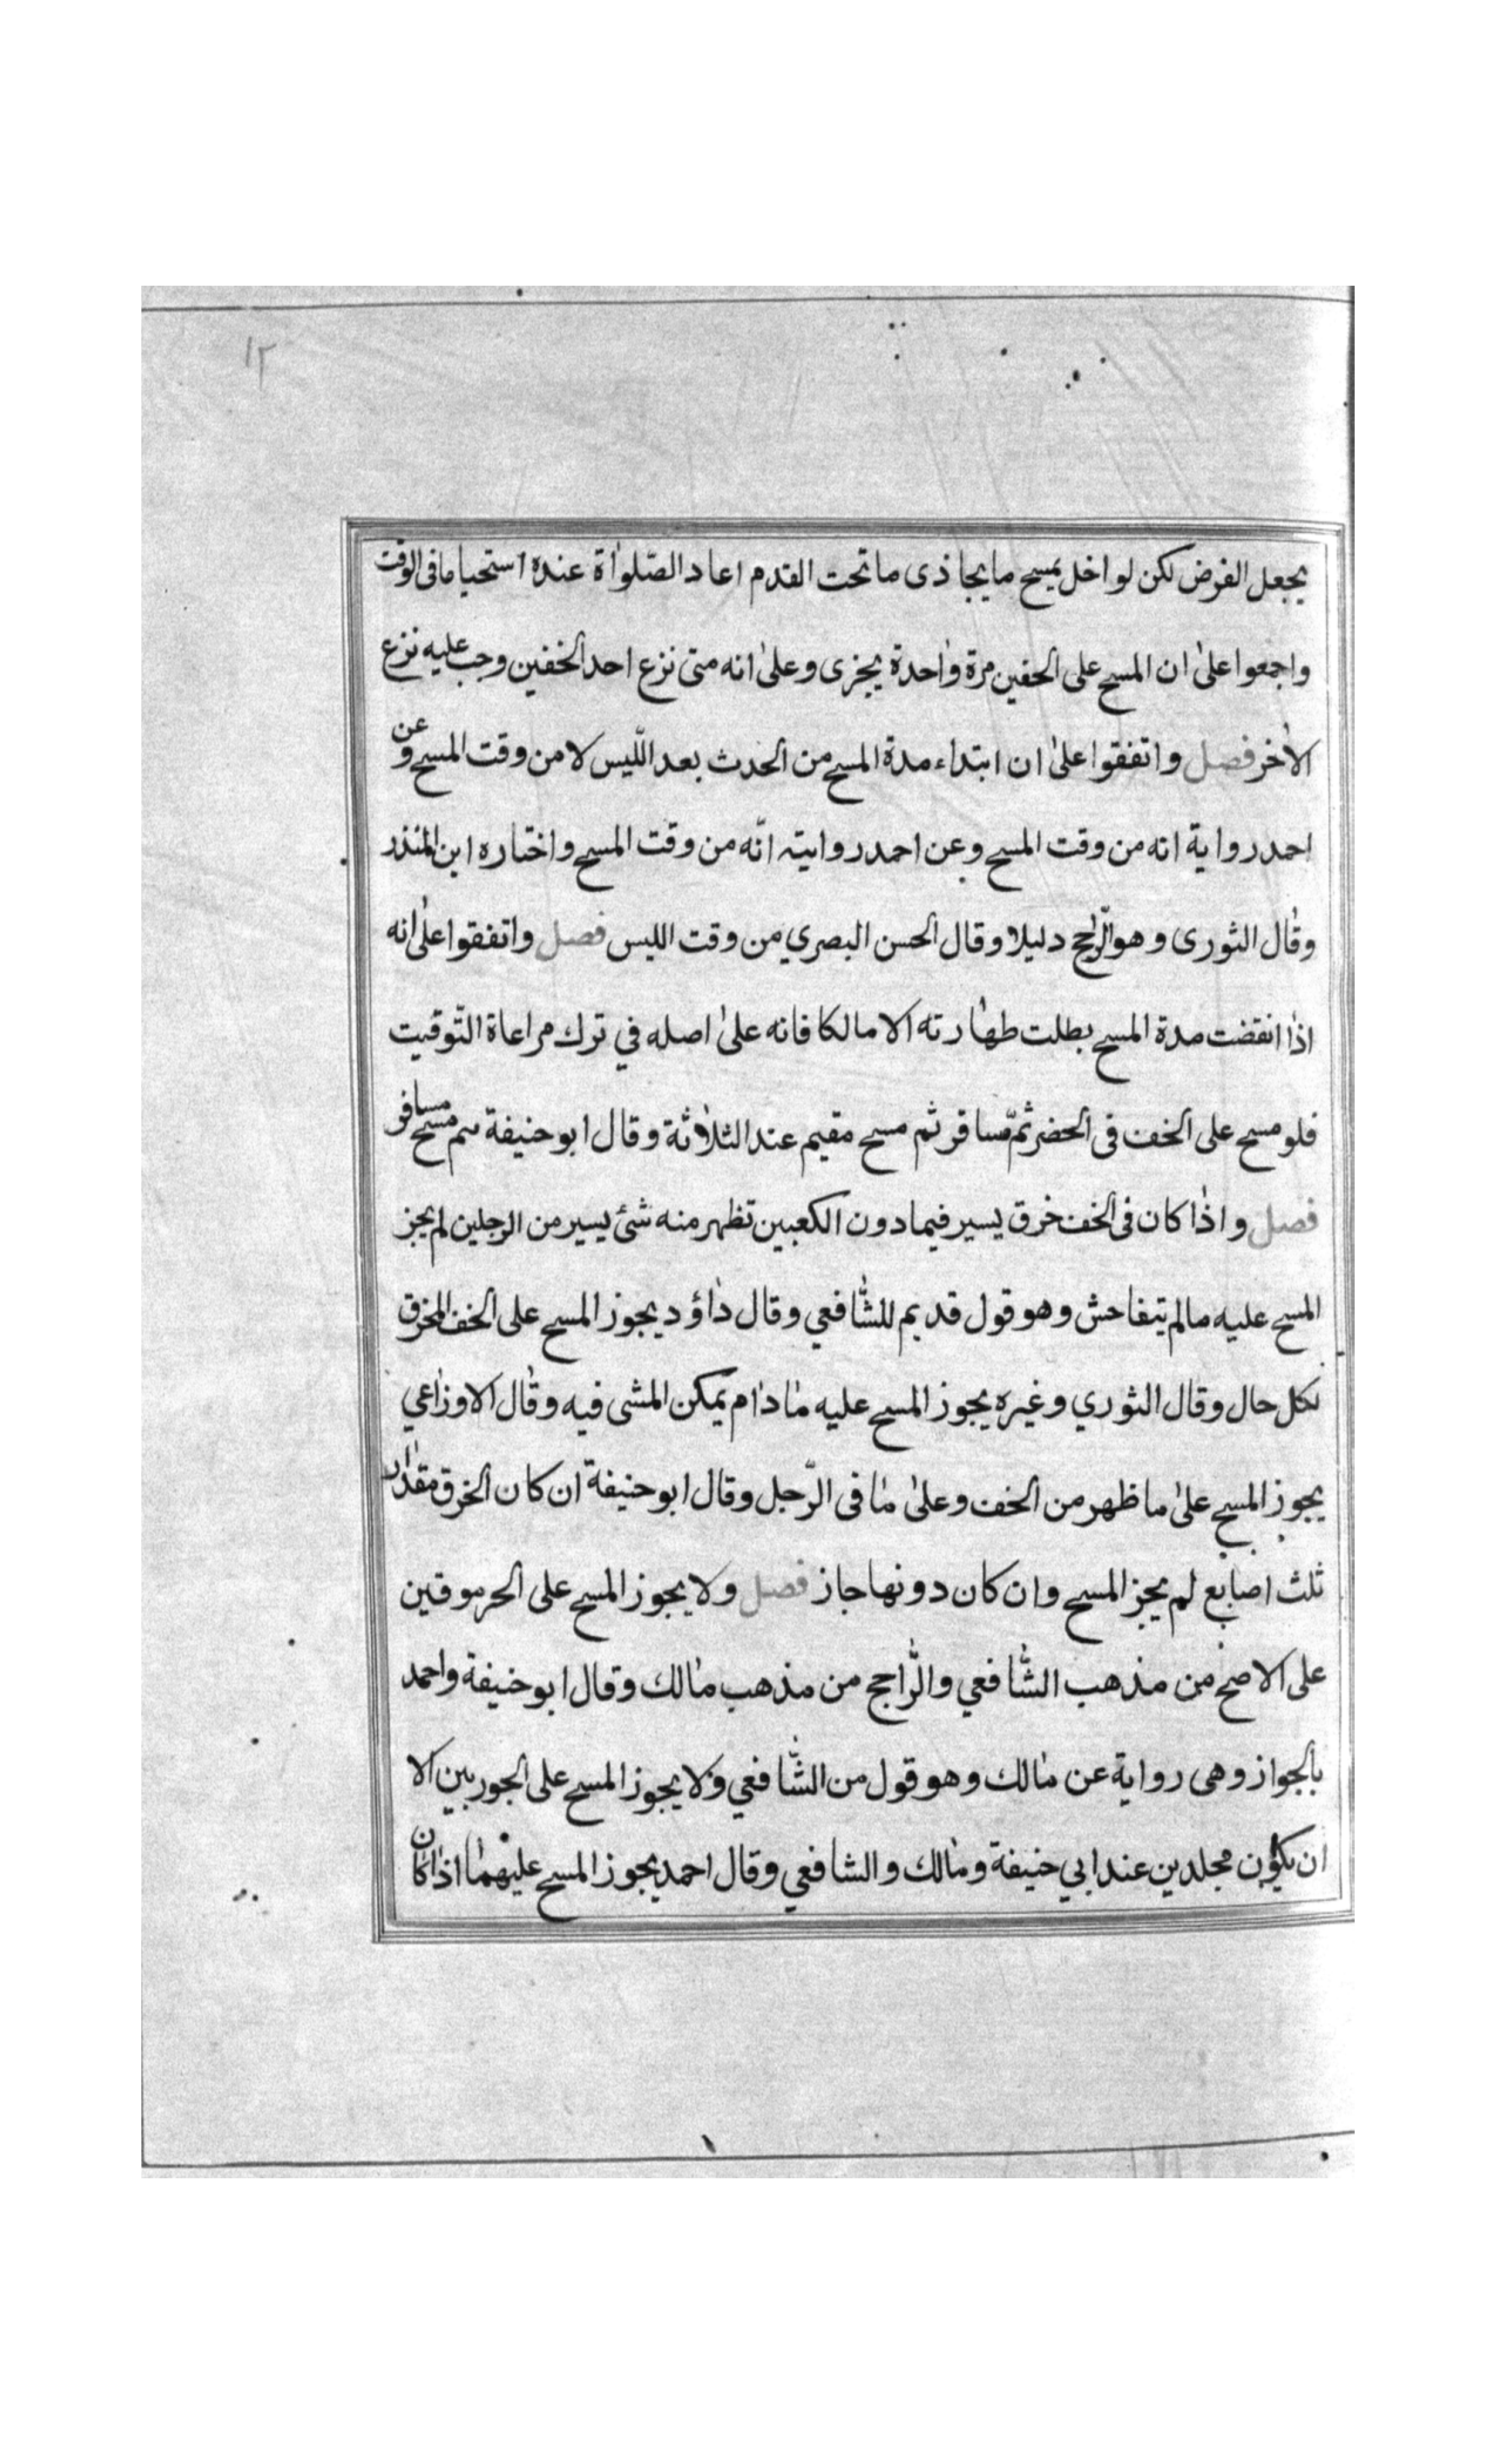 ١٢
يجعل الفرض لكن لو اخل بمسح ما يحاذى ما تحت القدم اعاد الصّلواة عنده استحبابا فى الوقت
واجمعوا على ان المسح على الخفين مرة واحدة يجزى وعلى انه متى نزع احد الخفين وجب عليه نزع
الاخر فصل واتفقوا على ان ابتداء مدة المسح من الحدث بعد اللّيس لا من وقت المسح وعن
احمد رواية انه من وقت المسح وعن احمد روايته انّه من وقت المسح واختاره ابن المنذر
وقال الثورى وهو الرّاجح دليلا وقال الحسن البصري من وقت الليس فصل واتفقوا على انه
اذا انقضت مدة المسح بطلت طهارته الا مالكا فانه على اصله في ترك مراعاة التّوقيت
فلو مسح على الخف فى الحضر ثمّ سافر ثم مسح مقيم عند الثلاثة وقال ابو حنيفة يتم مسح مسافر
فصل واذا كان فى الخف خرق يسير فيما دون الكعبين تظهر منه شئ يسير من الرجلين لم يجز
المسح عليه مالم يتفاحش وهو قول قديم للشّافعي وقال داؤد يجوز المسح على الخف المخرق
بكل حال وقال الثوري وغيره يجوز المسح عليه مادام يمكن المشى فيه وقال الاوزاعي
يجوز المسح على ما ظهر من الخف وعلى ما فى الرّجل وقال ابو حنيفة ان كان الخرق مقدار
ثلث اصابع لم يجز المسح وان كان دونها جاز فصل ولا يجوز المسح على الحرموقين
على الاصح من مذهب الشّافعي والرّاجح من مذهب مالك وقال ابو حنيفة واحمد
بالجواز وهى رواية عن مالك وهو قول من الشّافعي ولا يجوز المسح على الجوربين الا
ان يكون مجلدين عند ابي حنيفة ومالك والشافعي وقال احمد يجوز المسح عليهما اذا كان